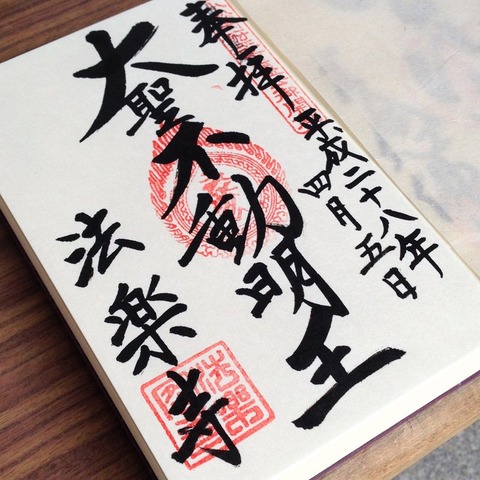 奉拝
平成二十八年
四月五日
大聖不動明王
法楽寺